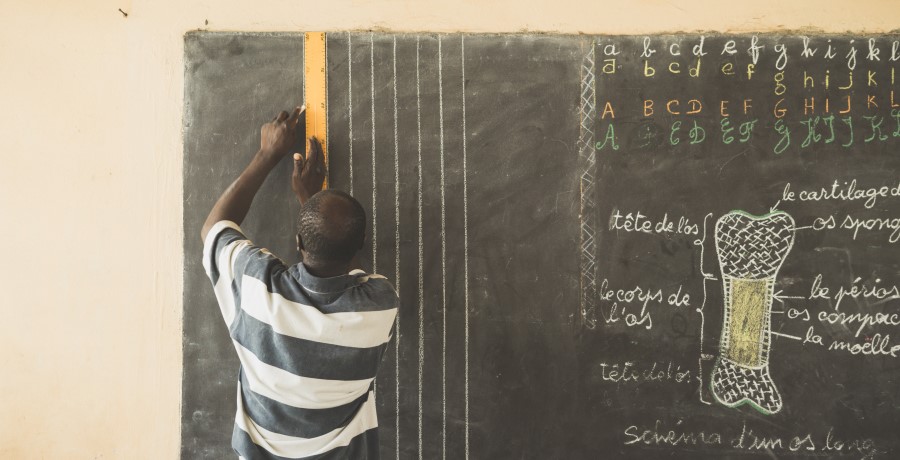 a b c d e f g h i j k l
a b c d e f g h i j k l
A B C D E F G H I J K L
A B C D E F G H I J K
le cartilage d
tête de l'os
os spong
le corps de
l'os
le périos
os compac
la moëlle
tête de l'os
Schéma d'un os long